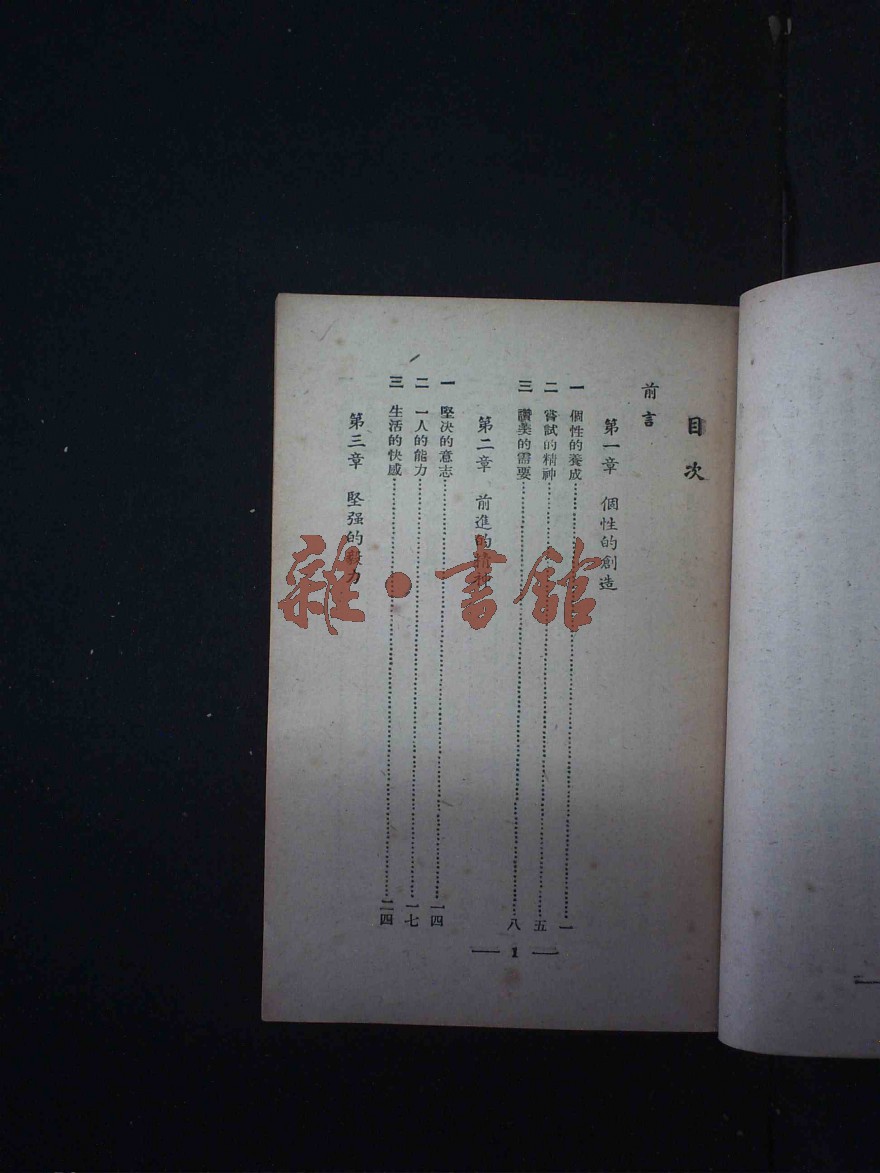 目次
前言
第一章 個性的創造
一 個性的養成…………一
二 嘗試的精神…………五
三 讚美的需要…………八
第二章 前進的精神
一 堅决的意志…………一四
二 一人的能力…………一七
三 生活的快感…………二四
第三章 堅强的毅力
— 1 —
雜·書館